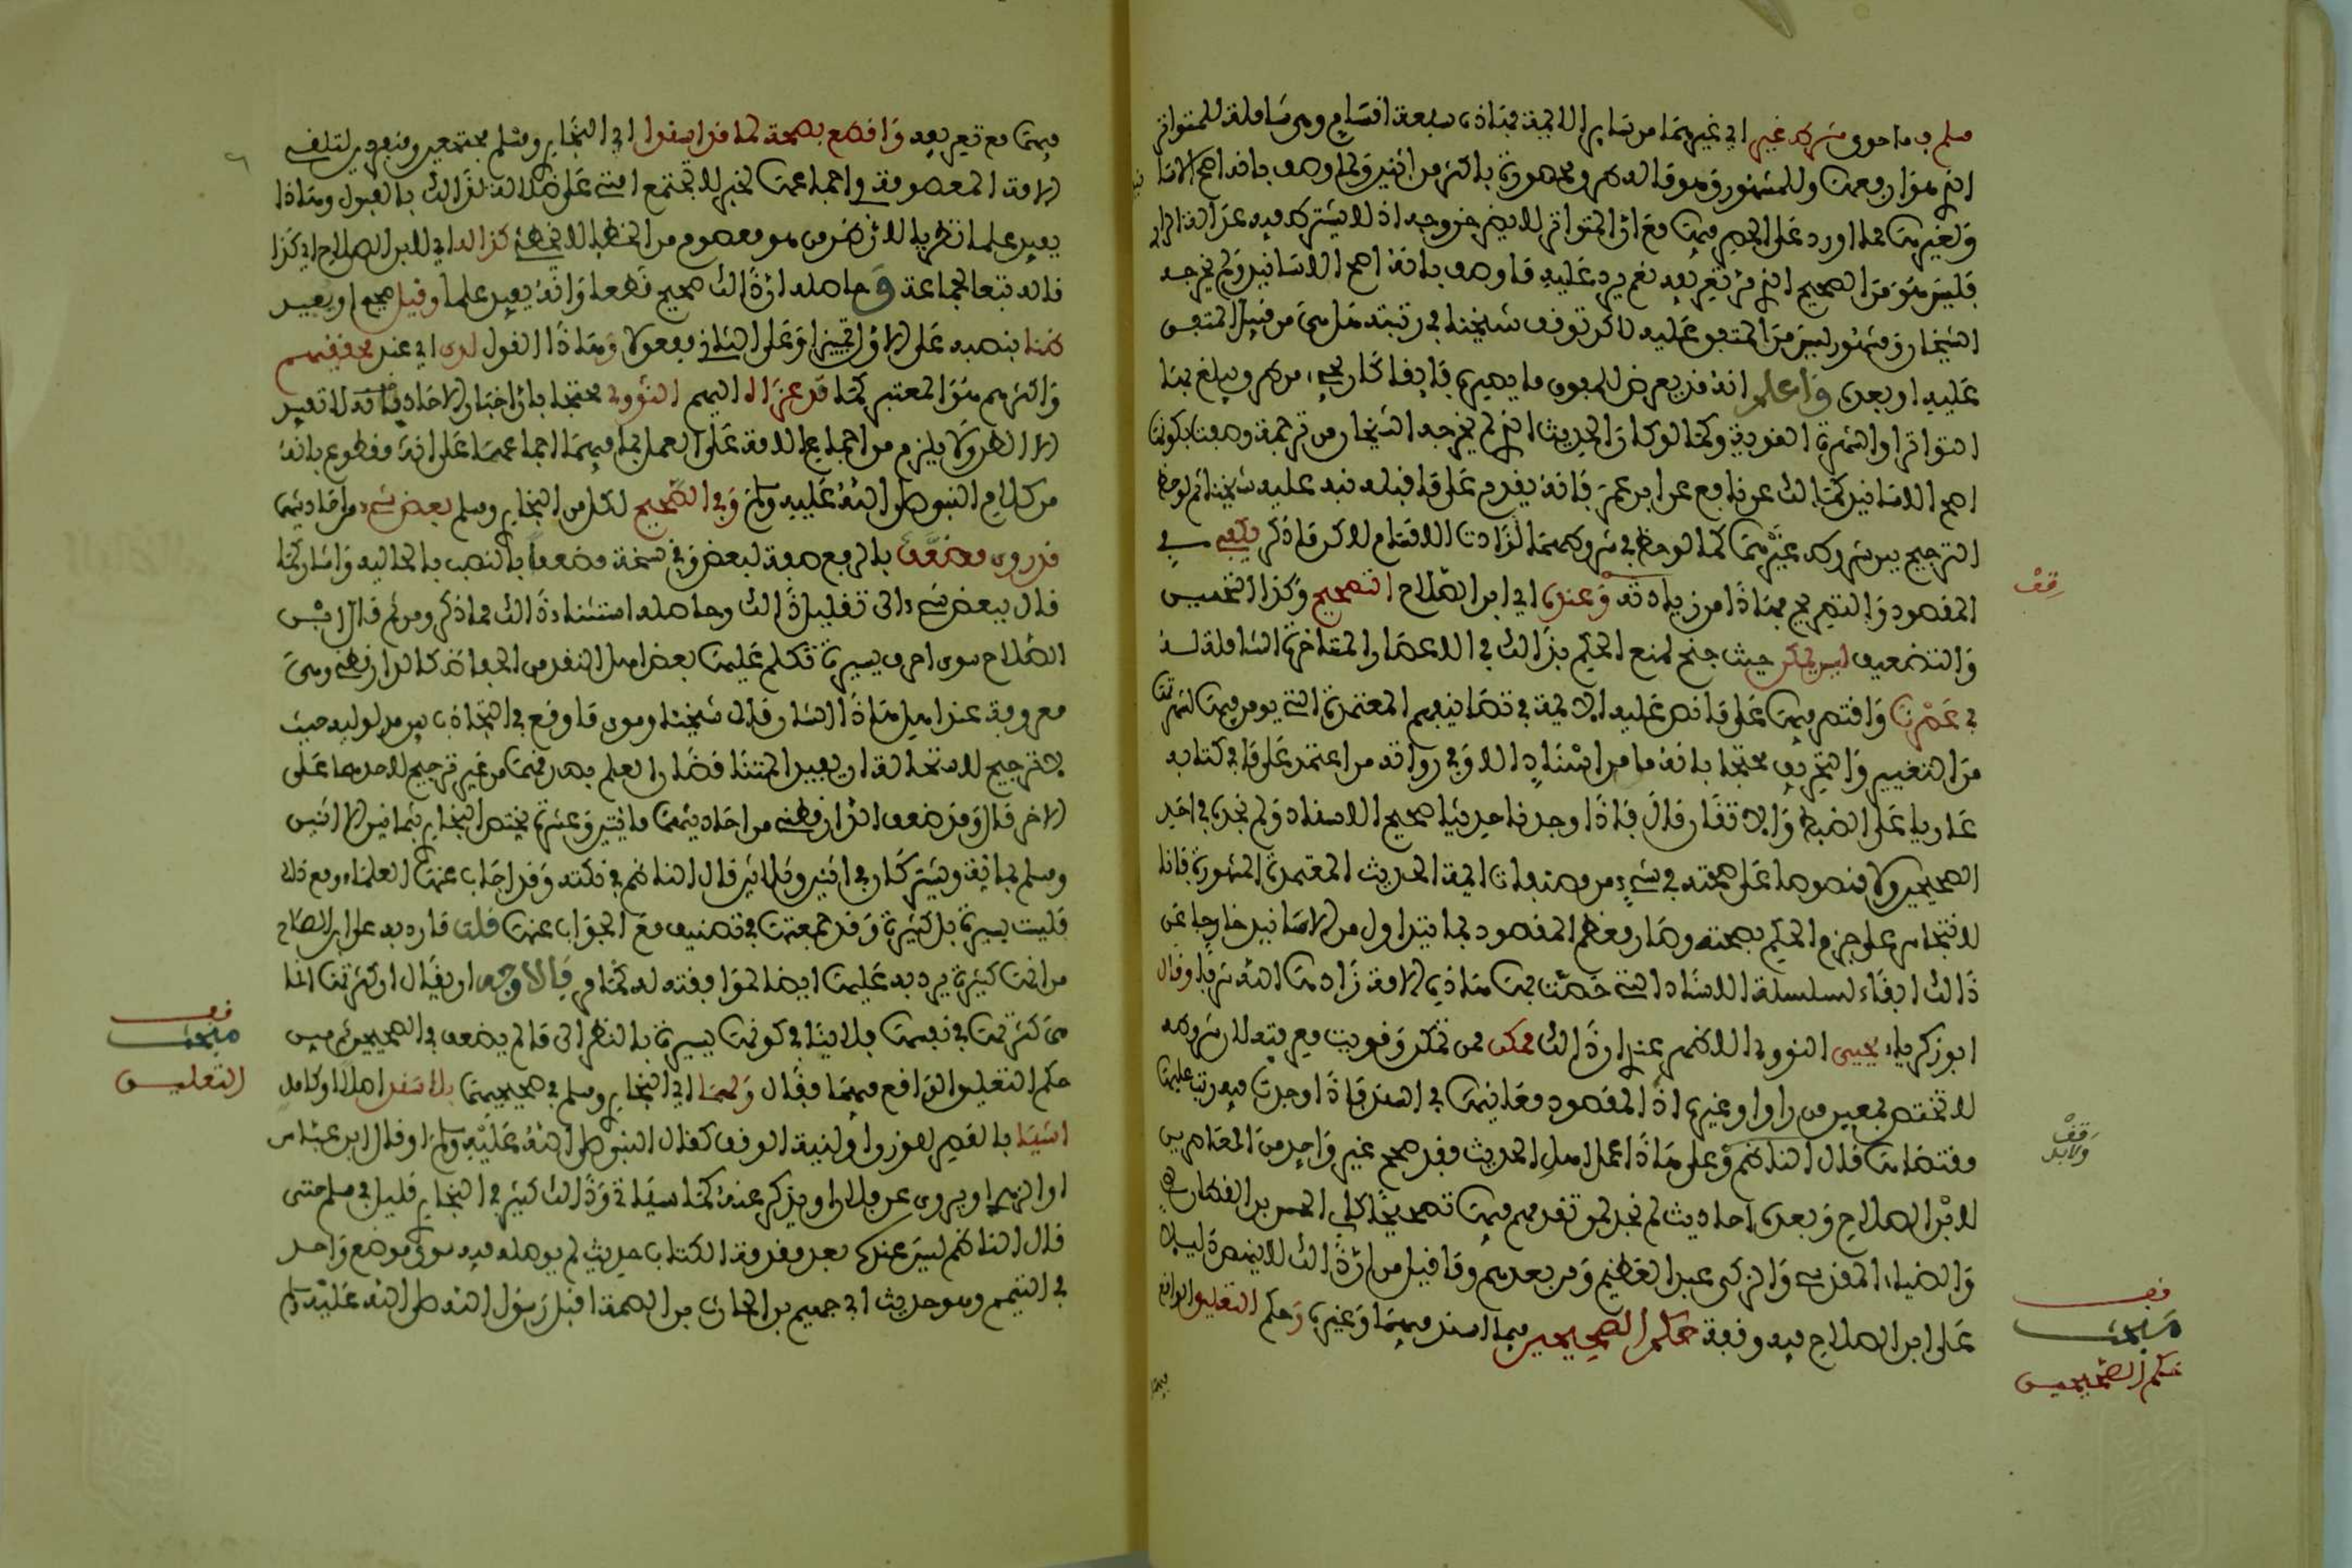 مسلم فما حوى شرط غير اي غيرهما من سائر الائمة فهاذه سبعة اقسام وهي شاملة للمتواتر
الذي هو ارفعها وللمشهور وهو قاله طرق محصورة باكثر من اثنين ولما وصف بانه اصح الاسا
ولغيرها مما اورد على الحصر فيها مع ان المتواتر لا يضر خروجه اذ لا يشترط فيه عدالة الراوي
فليس هو من الصحيح الذي مر تعريفه نعم يرد عليه ما وصف بانه اصح الاسانيد ولم يخرجه
الشيخان ومشهور ليس من المتفق عليه لاكن توقف شيخنا في رتبته هل هي من قبيل المتفق
عليه او بعده واعلم انه قد يعرض للمفوق ما يصيره فايقا كان يجيء من طرق يبلغ بها
التواتر او الشهرة القوية وكما لو كان الحديث الذي لم يخرجه الشيخان من ترجمة وصفت بكونها
اصح الاسانيد كمالك عن نافع عن ابن عمر فانه يقدم على ما قبله نبه عليه شيخنا ثم لوحظ
الترجيح بين شروط غيرهما كما لوحظ في شروطهما لزادت الاقسام لاكن ما ذكر يكفي في
المقصود والتصريح بهاذا من زيادته وعنده اي ابن الصلاح التصحيح وكذا التحسين
والتضعيف ليس يمكن حيث جنح لمنع الحكم بذالك في الاعصار المتاخرة الشاملة له
في عصرنا واقتصر فيها على ما نص عليه الايمة في تصانيفهم المعتمدة التي يومن فيها لشهرتها
من التغيير والتحريف محتجا بانه ما من اسناد الا وفي رواته من اعتمد على ما في كتابه
عاريا على الضبط والاتقان قال فاذا وجدنا حديثا صحيح الاسناد ولم نجده في احد
الصحيحين ولا منصوصا على صحته في شيء من مصنفات ايمة الحديث المعتمدة المشهورة فانا
لا نتجاسر على جزم الحكم بصحته وصار معظم المقصود بما يتداول من الاسانيد خارجا عن
ذالك ابقاء لسلسلة الاسناد التي خصت بها هاذه الامة زادها الله شرفا وقال
ابو زكرياء يحيى النووي الاظهر عندي ان ذالك ممكن لمن تمكن وقويت معرفته لان شروطه
لا تختص لمعين من راو او غيره اذ المقصود معانيها في السند فاذا وجدت فيه رتبت عليها
مقتضاها قال الناظم وعلى هاذا عمل اهل الحديث فقد صحح غير واحد من المعاصرين
لابن الصلاح وبعده احاديث لم نجد لمن تقدمهم فيها تصحيحا كابي الحسن بن القطان
والضياء المقدسي والزكي عبد العظيم ومن بعدهم وما قيل من ان ذالك لا ينتهض دليلا
على ابن الصلاح فيه وقفة حكم الصحيحين فيما اسند فيهما وغيره وحكم التعليق الواقع
فيهما
قف
قف ولابد
قف مبحث
حكم الصحيحين
فيهما مع تعريفه واقطع بصحة لما قد اسندا اي البخاري ومسلم مجتمعين ومنفردين لتلقي
الامة المعصومة في اجماعها لخبر لا تجتمع امتي على ضلالة لذالك بالقبول وهاذا
يفيد علما نظريا لان ظن من هو معصوم من الخطا لا يخطئ كذا له اي لابن الصلاح اي كذا
قاله تبعا لجماعة وحاصله ان ذالك صحيح قطعا وانه يفيد علما وقيل صحيح او يفيد
ظنا بنصبه على الاول تمييزا وعلى الثاني مفعولا وهاذا القول لدى اي عند محققيهم
واكثرهم هو المعتبر كما قد عزاه اليهم النووي محتجا بان اخبار الاحاد فانه لا تفيد
الا الظن ولا يلزم من اجماع الامة على العمل بما فيهما اجماعها على انه مقطوع بانه
من كلام النبي صلى الله عليه وسلم وفي الصحيح لكل من البخاري ومسلم بعض شيء من احاديثهما
قد روى مضعف بالرفع صفة لبعض وفي نسخة مضعفا بالنصب بالحالية واشار كما
قال ببعض شيء الى تقليل ذالك وحاصله استثناء ذالك مما ذكر ومن ثم قال ابن
الصلاح سوى احرف يسيرة تكلم عليها بعض اهل النقد من الحفاظ كالدارقطني وهي
معروفة عند اهل هاذا الشان قال شيخنا وسوى ما وقع في التجاذب بين مدلوليه حيث
لا ترجيح لاستحالة ان يفيد المتناقضان العلم بصدقهما من غير ترجيح لاحدهما على
الاخر قال وقد ضعف الدارقطني من احاديثهما مايتين وعشرة يختص البخاري بثمانين الا اثنين
ومسلم بماية ويشتركان في اثنين وثلاثين قال الناظم في نكته وقد اجاب عنها العلماء ومع ذالك
فليست يسيرة بل كثيرة وقد جمعتها في تصنيف مع الجواب عنها قلت ما رد به على ابن الصلاح
من انها كثيرة يرد به عليها ايضا لموافقته له كما مر فالاوجه ان يقال ان كثرتها انما
هي كثرتها في نفسها فلا ينافي كونها يسيرة بالنظر الى ما لم يضعف في الصحيحين ثم بين
حكم التعليق الواقع فيهما فقال ولهما اي البخاري ومسلم في صحيحيهما بلا سند اصلا او كامل
اشيا بالقصر للوزن او لنية الوقف كقال النبي صلى الله عليه وسلم او قال ابن عباس
او الزهري او يروى عن فلان او يذكر عنه كما سياتي وذالك كثير في البخاري قليل في مسلم حتى
قال الناظم ليس عنده بعد مقدمة الكتاب حديث لم يوصله فيه سوى موضع واحد
في التيمم وهو حديث ابي جهيم بن الحارث بن الصمة اقبل رسول الله صلى الله عليه وسلم
قف
مبحث
التعليق